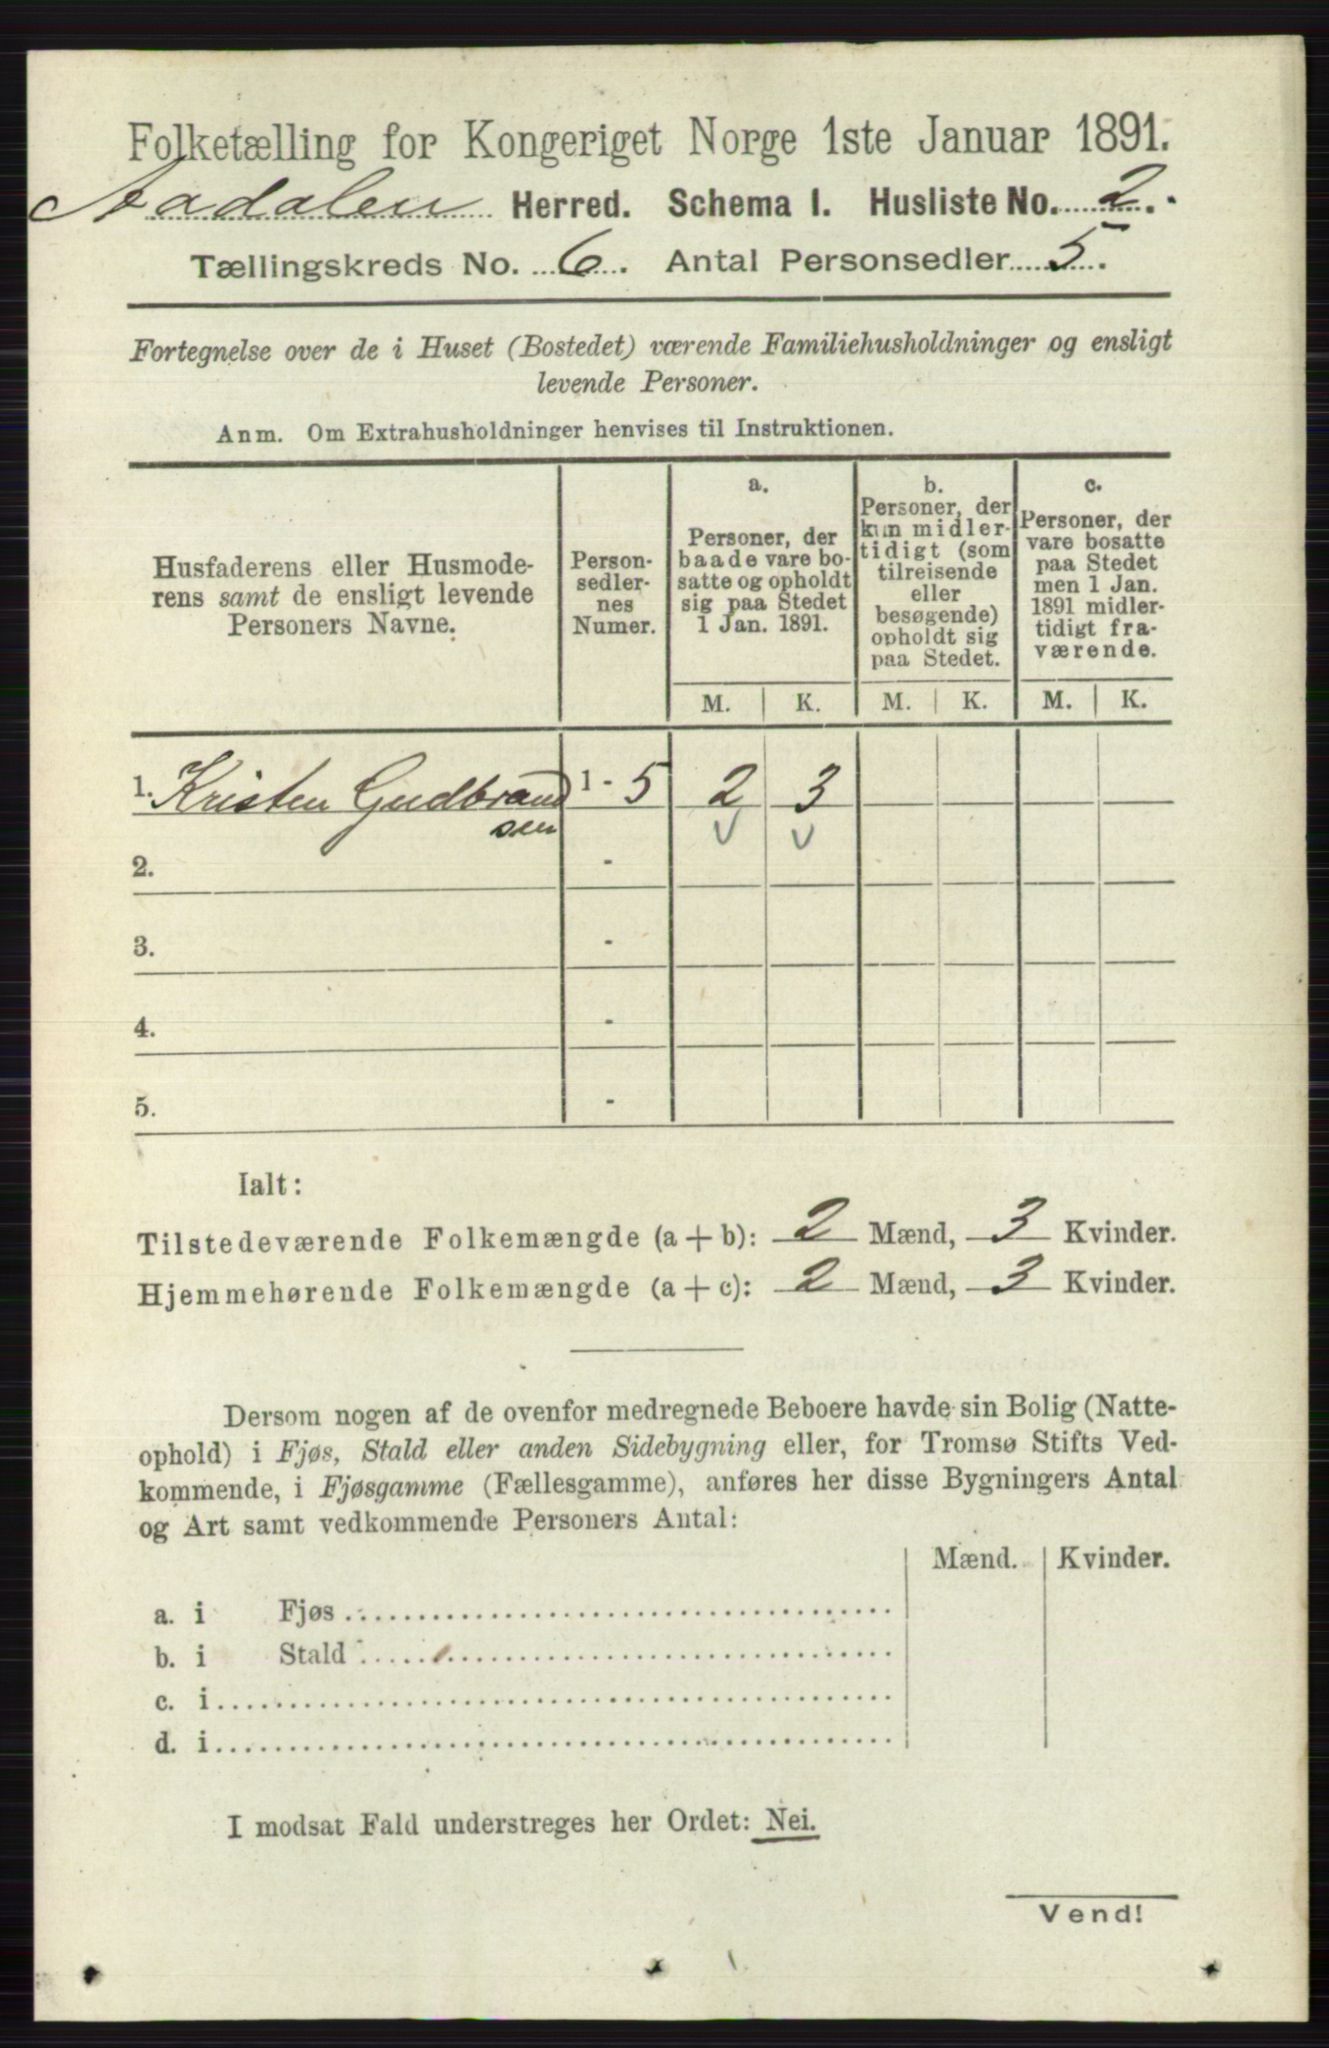 Folketælling for Kongeriget Norge 1ste Januar 1891.
Aadalen Herred. Schema I. Husliste No. 2.
Tællingskreds No. 6. Antal Personsedler 5.
Fortegnelse over de i Huset (Bostedet) værende Familiehusholdninger og ensligt
levende Personer.
Anm. Om Extrahusholdninger henvises til Instruktionen.
Husfaderens eller Husmode-
rens samt de ensligt levende
Personers Navne.
Person-
sedler-
nes
Numer.
a.
Personer, der
baade vare bo-
satte og opholdt
sig paa Stedet
1 Jan. 1891.
b.
Personer, der
kun midler-
tidigt (som
tilreisende
eller
besøgende)
opholdt sig
paa Stedet.
c.
Personer, der
vare bosatte
paa Stedet
men 1 Jan.
1891 midler-
tidigt fra-
værende.
M. K. M. K. M. K.
1. Kristen Gudbrand 1 - 5 2 3
sen
2. -
3. -
4. -
5. -
Ialt:
Tilstedeværende Folkemængde (a + b): 2 Mænd, 3 Kvinder.
Hjemmehørende Folkemængde (a + c): 2 Mænd, 3 Kvinder.
Dersom nogen af de ovenfor medregnede Beboere havde sin Bolig (Natte-
ophold) i Fjøs, Stald eller anden Sidebygning eller, for Tromsø Stifts Ved-
kommende, i Fjøsgamme (Fællesgamme), anføres her disse Bygningers Antal
og Art samt vedkommende Personers Antal:
Mænd. Kvinder.
a. i Fjøs
b. i Stald
c. i
d. i
I modsat Fald understreges her Ordet: Nei.
Vend!